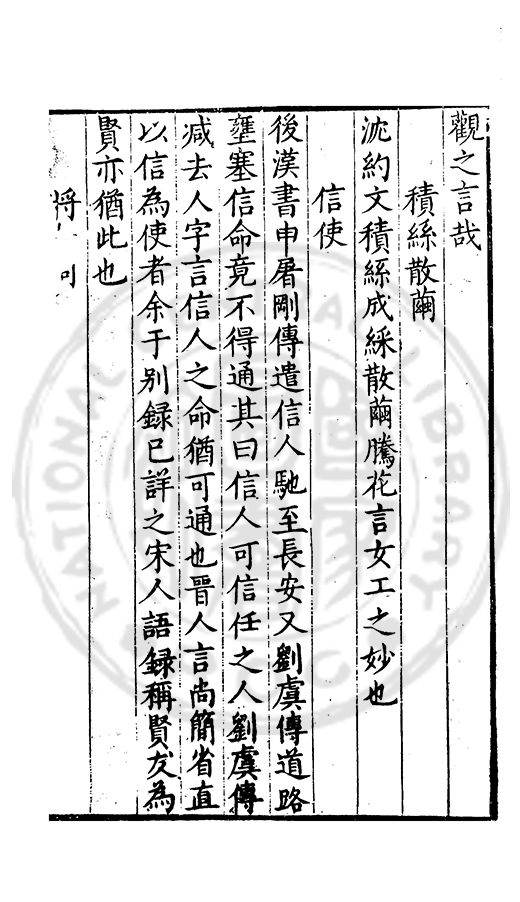 觀之言哉
積絲散繭
沈約文積絲成綵散繭騰花言女工之妙也
信使
後漢書申屠剛傳遣信人馳至長安又劉虞傳道路
壅塞信命竟不得通其曰信人可信任之人劉虞傳
减去人字言信人之命猶可通也晉人言尚簡省直
以信為使者余于别録已詳之宋人語録稱賢友為
賢亦猶此也
将
NATIONAL CENTRAL LIBRARY